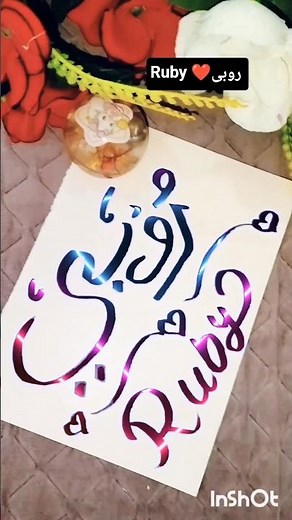 Ruby ❤️روبی
روبی
Ruby
InShOt